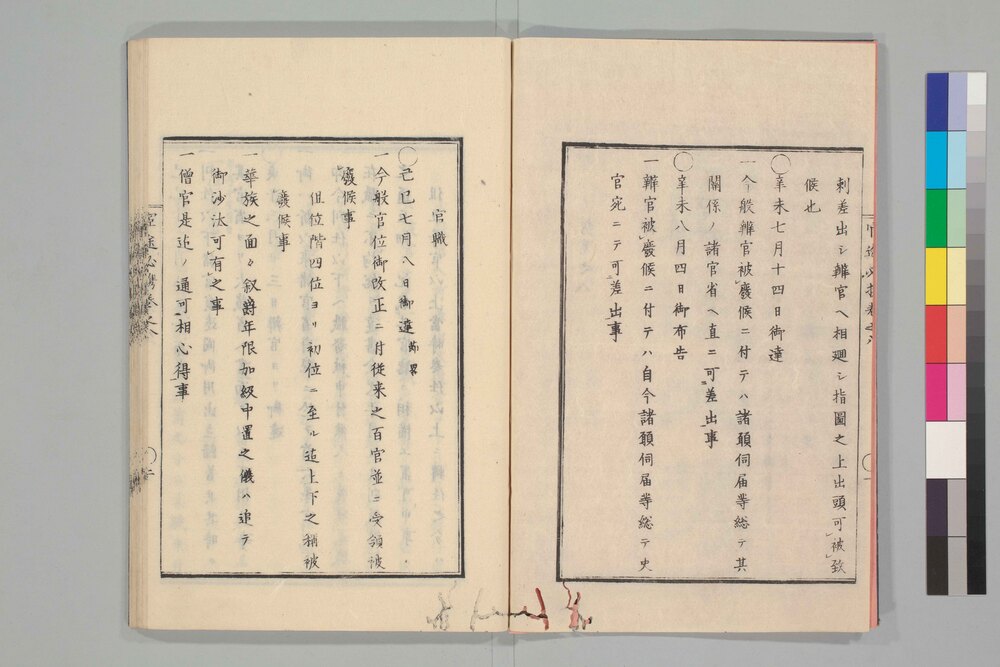 刺差出シ辨官ヘ相廻シ指圖之上出頭可被致
候也
〇辛未七月十四日御達
一今般辨官被廢候ニ付テハ諸願伺届等総テ其
關係ノ諸官省ヘ直ニ可差出事
〇辛未八月四日御布告
一辨官被廢候ニ付テハ自今諸願伺届等総テ史
官宛ニテ可差出事
官職
〇己巳七月八日御達 節畧
一今般官位御改正ニ付従来之百官並ニ受領被
廢候事
但位階四位ヨリ初位ニ至ル迠上下之稱被
廢候事
一華族之面々叙爵年限加級中置之儀ハ追テ
御沙汰可有之事
一僧官是迠ノ通可相心得事